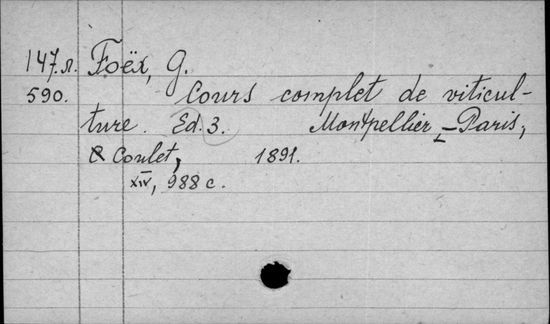 147.л. Foëx, G.
590. Cours complet de viticul-
ture. Ed. 3. Montpellier – Paris,
Coulet, 1891.
XIV, 988 c.